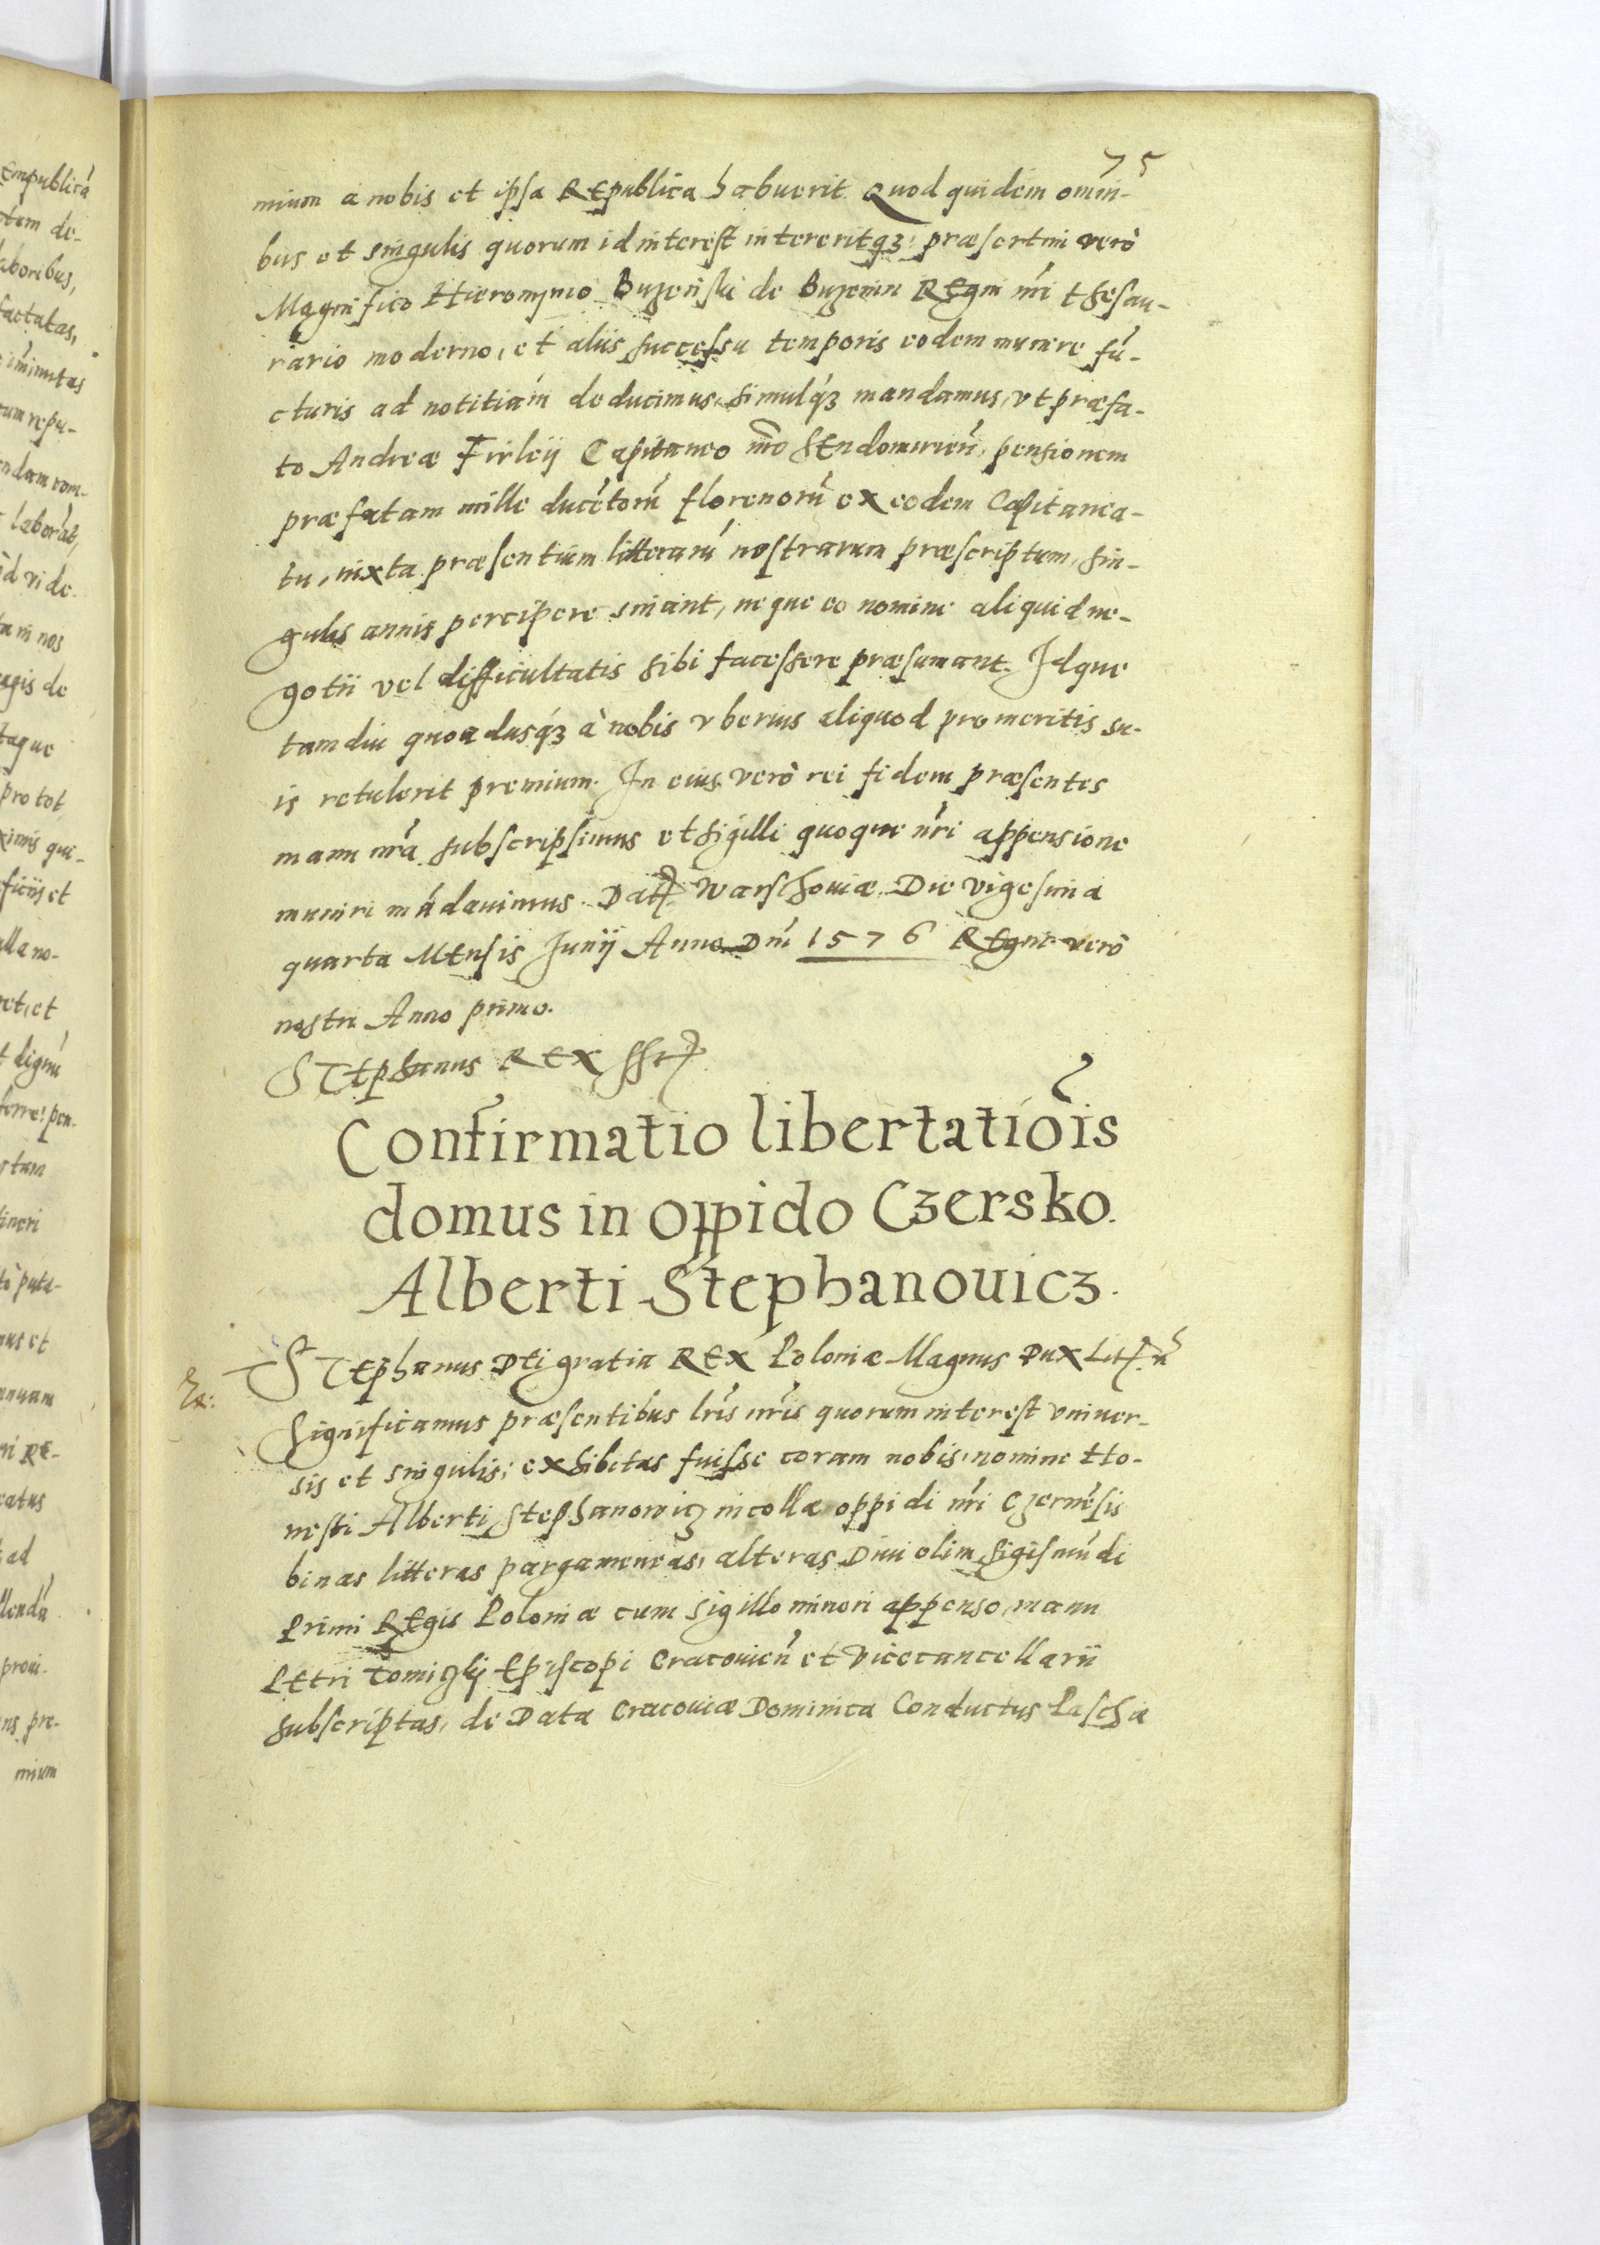 75
mium a nobis et ipsa Republica habuerit. Quod quidem omni-
bus et singulis quorum id interest intereritqz, præsertim verò
Magnifico Hieronymo Buzeński de Buzenin Regni nri thesau-
rario moderno, et aliis successu temporis eodem munere fũ-
cturis ad notitiam deducimus, simulqz mandamus, vt præfa-
to Andreæ Firleÿ Capitaneo nro Sendomirień, pensionem
præfatam mille ducẽtorũ florenorũ ex eodem Capitanea-
tu, iuxta præsentium litterarũ nostrarum præscriptum, sin-
gulis annis percipere sinant, neque eo nomine aliquid ne-
gotii vel difficultatis sibi facessere præsumant. Idque
tamdiu quoadusqz à nobis vberius aliquod pro meritis su-
is retulerit premium. In eius verò rei fidem præsentes
manu nrã subscripsimus et sigilli quoque nri appensione
muniri mãdavimus. Dat Warschoviæ. Die vigesima
quarta Mensis Junÿ Anno Dnĩ 1576 Regni verò
nostri Anno primo.
Stephanus Rex sst
Confirmatio libertatiõis
domus in oppido Czersko.
Alberti Stephanouicz.
Stephanus Dei gratia Rex Poloniæ Magnus Dux Lit. &
Significamus præsentibus lris nris quorum interest vniuer-
sis et singulis, exhibitas fuisse coram nobis, nomine Ho-
nesti Alberti Stephanowicz incollæ oppidi nri Czernẽsis
binas litteras pargameneas, alteras Diui olim Sigismũdi
Primi Regis Poloniæ cum sigillo minori appenso, manu
Petri Tomiczÿ Episcopi Cracovień et Vicecancellarii
subscriptas, de Data Cracoviæ Dominica Conductus Paschæ